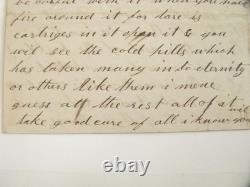 be careful with it when you make
fire around it for dare is
cathriges in it open it & you
will see the cold pills which
has taken many in to eternity
or others like them i mene
guess at the rest all of it
will take good cure of all i know you